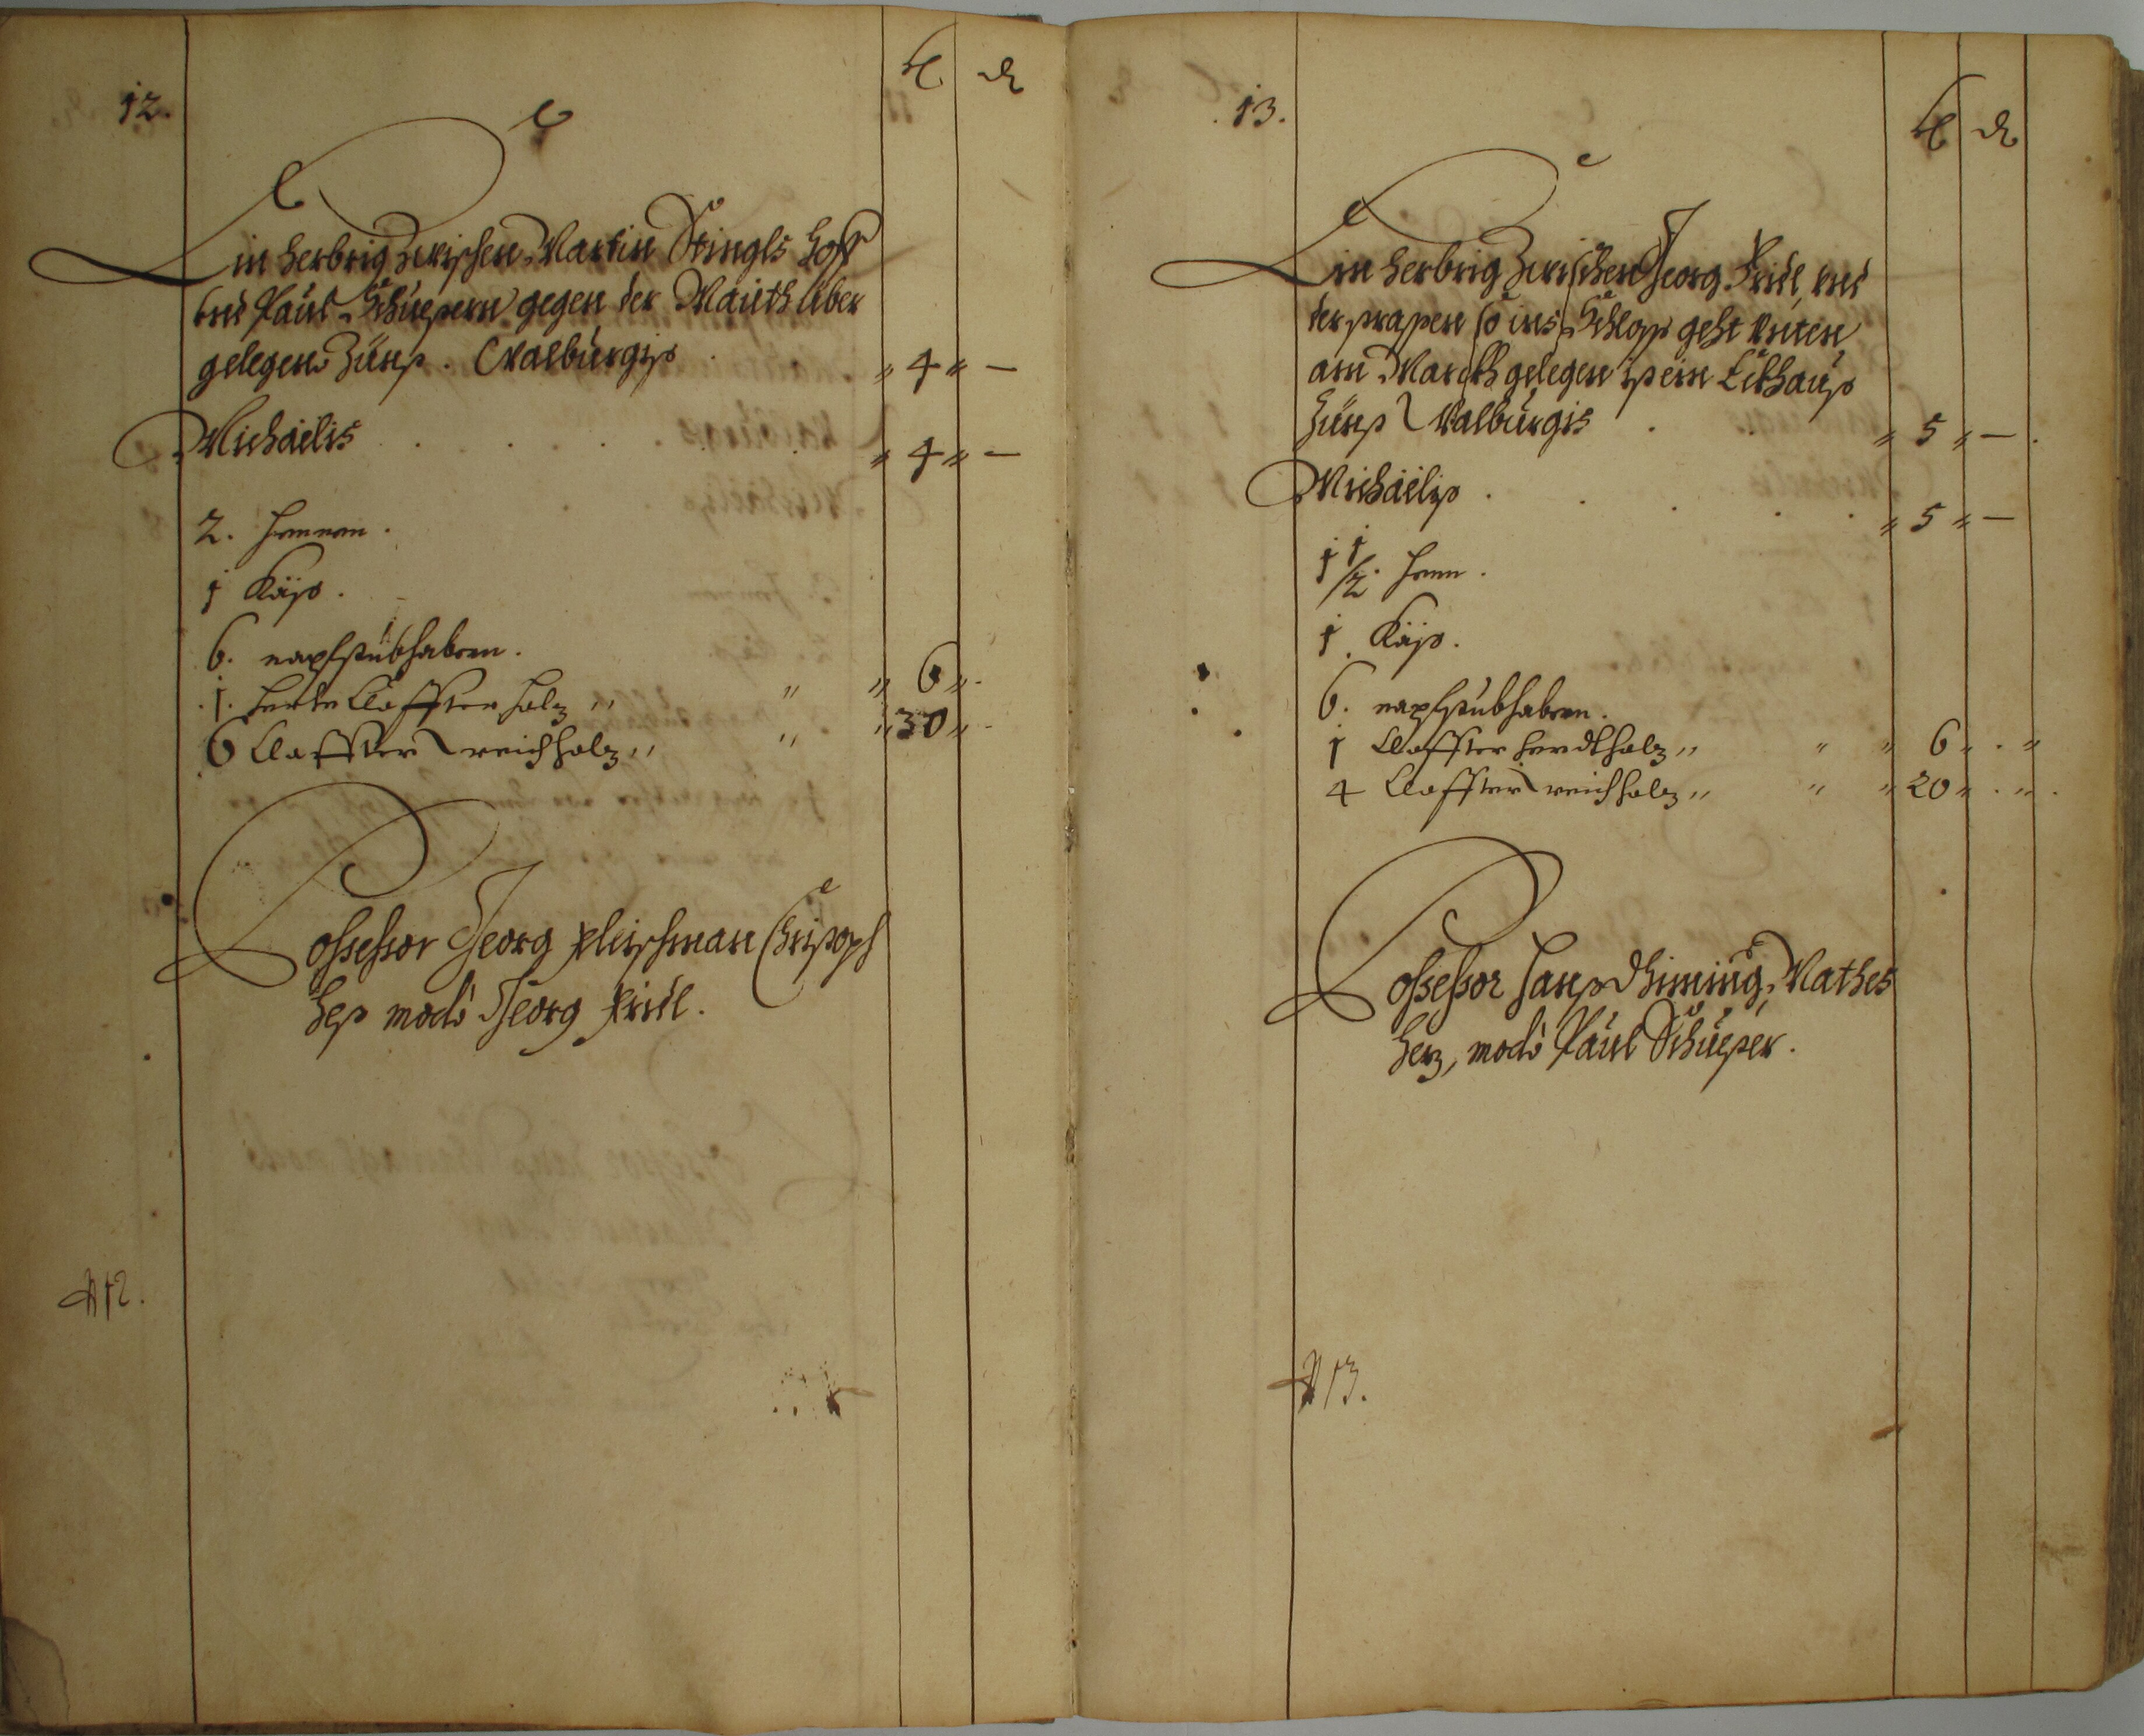 12.
kr. d.
Ein herbrig zwischen Martin Stingls hoff
vnd Paul Schuesern gegen der Mauth über
gelegen Zünst. Walburgis . „ 4 „ —
Michaelis . . . . „ 4 „ —
2. hennen.
1 Käß.
6. napfstubhabern.
1. herte Claffter holz „ „ „ 6 „
6 Claffter weichholz „ „ „ 30 „
Possessor Georg Fleischman Christoph
heß modo Georg Fridl.
N 12.
13.
kr. d.
Ein herbrig zwischen Georg Fridl, vnd
der strassen so ins Schloß geht vnten
am Marckh gelegen ist ein Eckhauß
Zünst Walburgis . . „ 5 „ —
Michaelis . . . . „ 5 „ —
1 1/2. henn.
1. Käß.
6. napfstubhabern.
1 Claffter herdtholz „ „ „ 6 „ . „
4 Claffter weichholz „ „ „ 20 „ . „
Possessor Hanß Mathes
herz, modo Paul Schueser.
N 13.